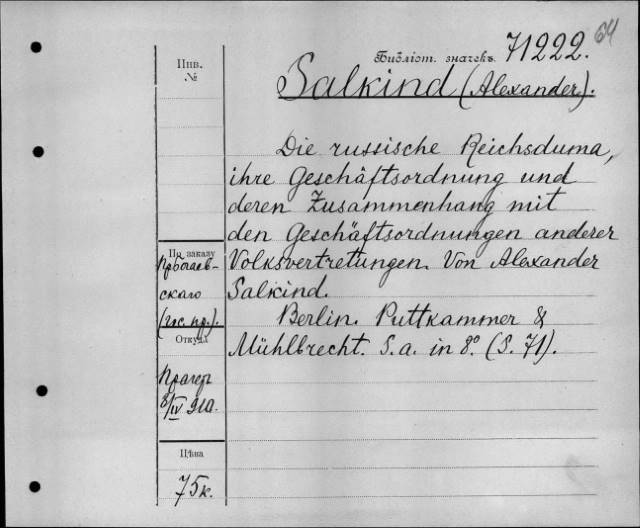 64
Библіот. значекъ 71222.
Инв.
№
Salkind (Alexander).
Die russische Reichsduma,
ihre Geschäftsordnung und
deren Zusammenhang mit
den Geschäftsordnungen anderer
Volksvertrettungen. Von Alexander
Salkind.
Berlin. Puttkammer &
Mühlbrecht. S.a. in 8º. (S. 71).
По заказу
скаго
(гос. пр.).
Откуда
Прагеръ
8/IV 910.
Цѣна
75к.